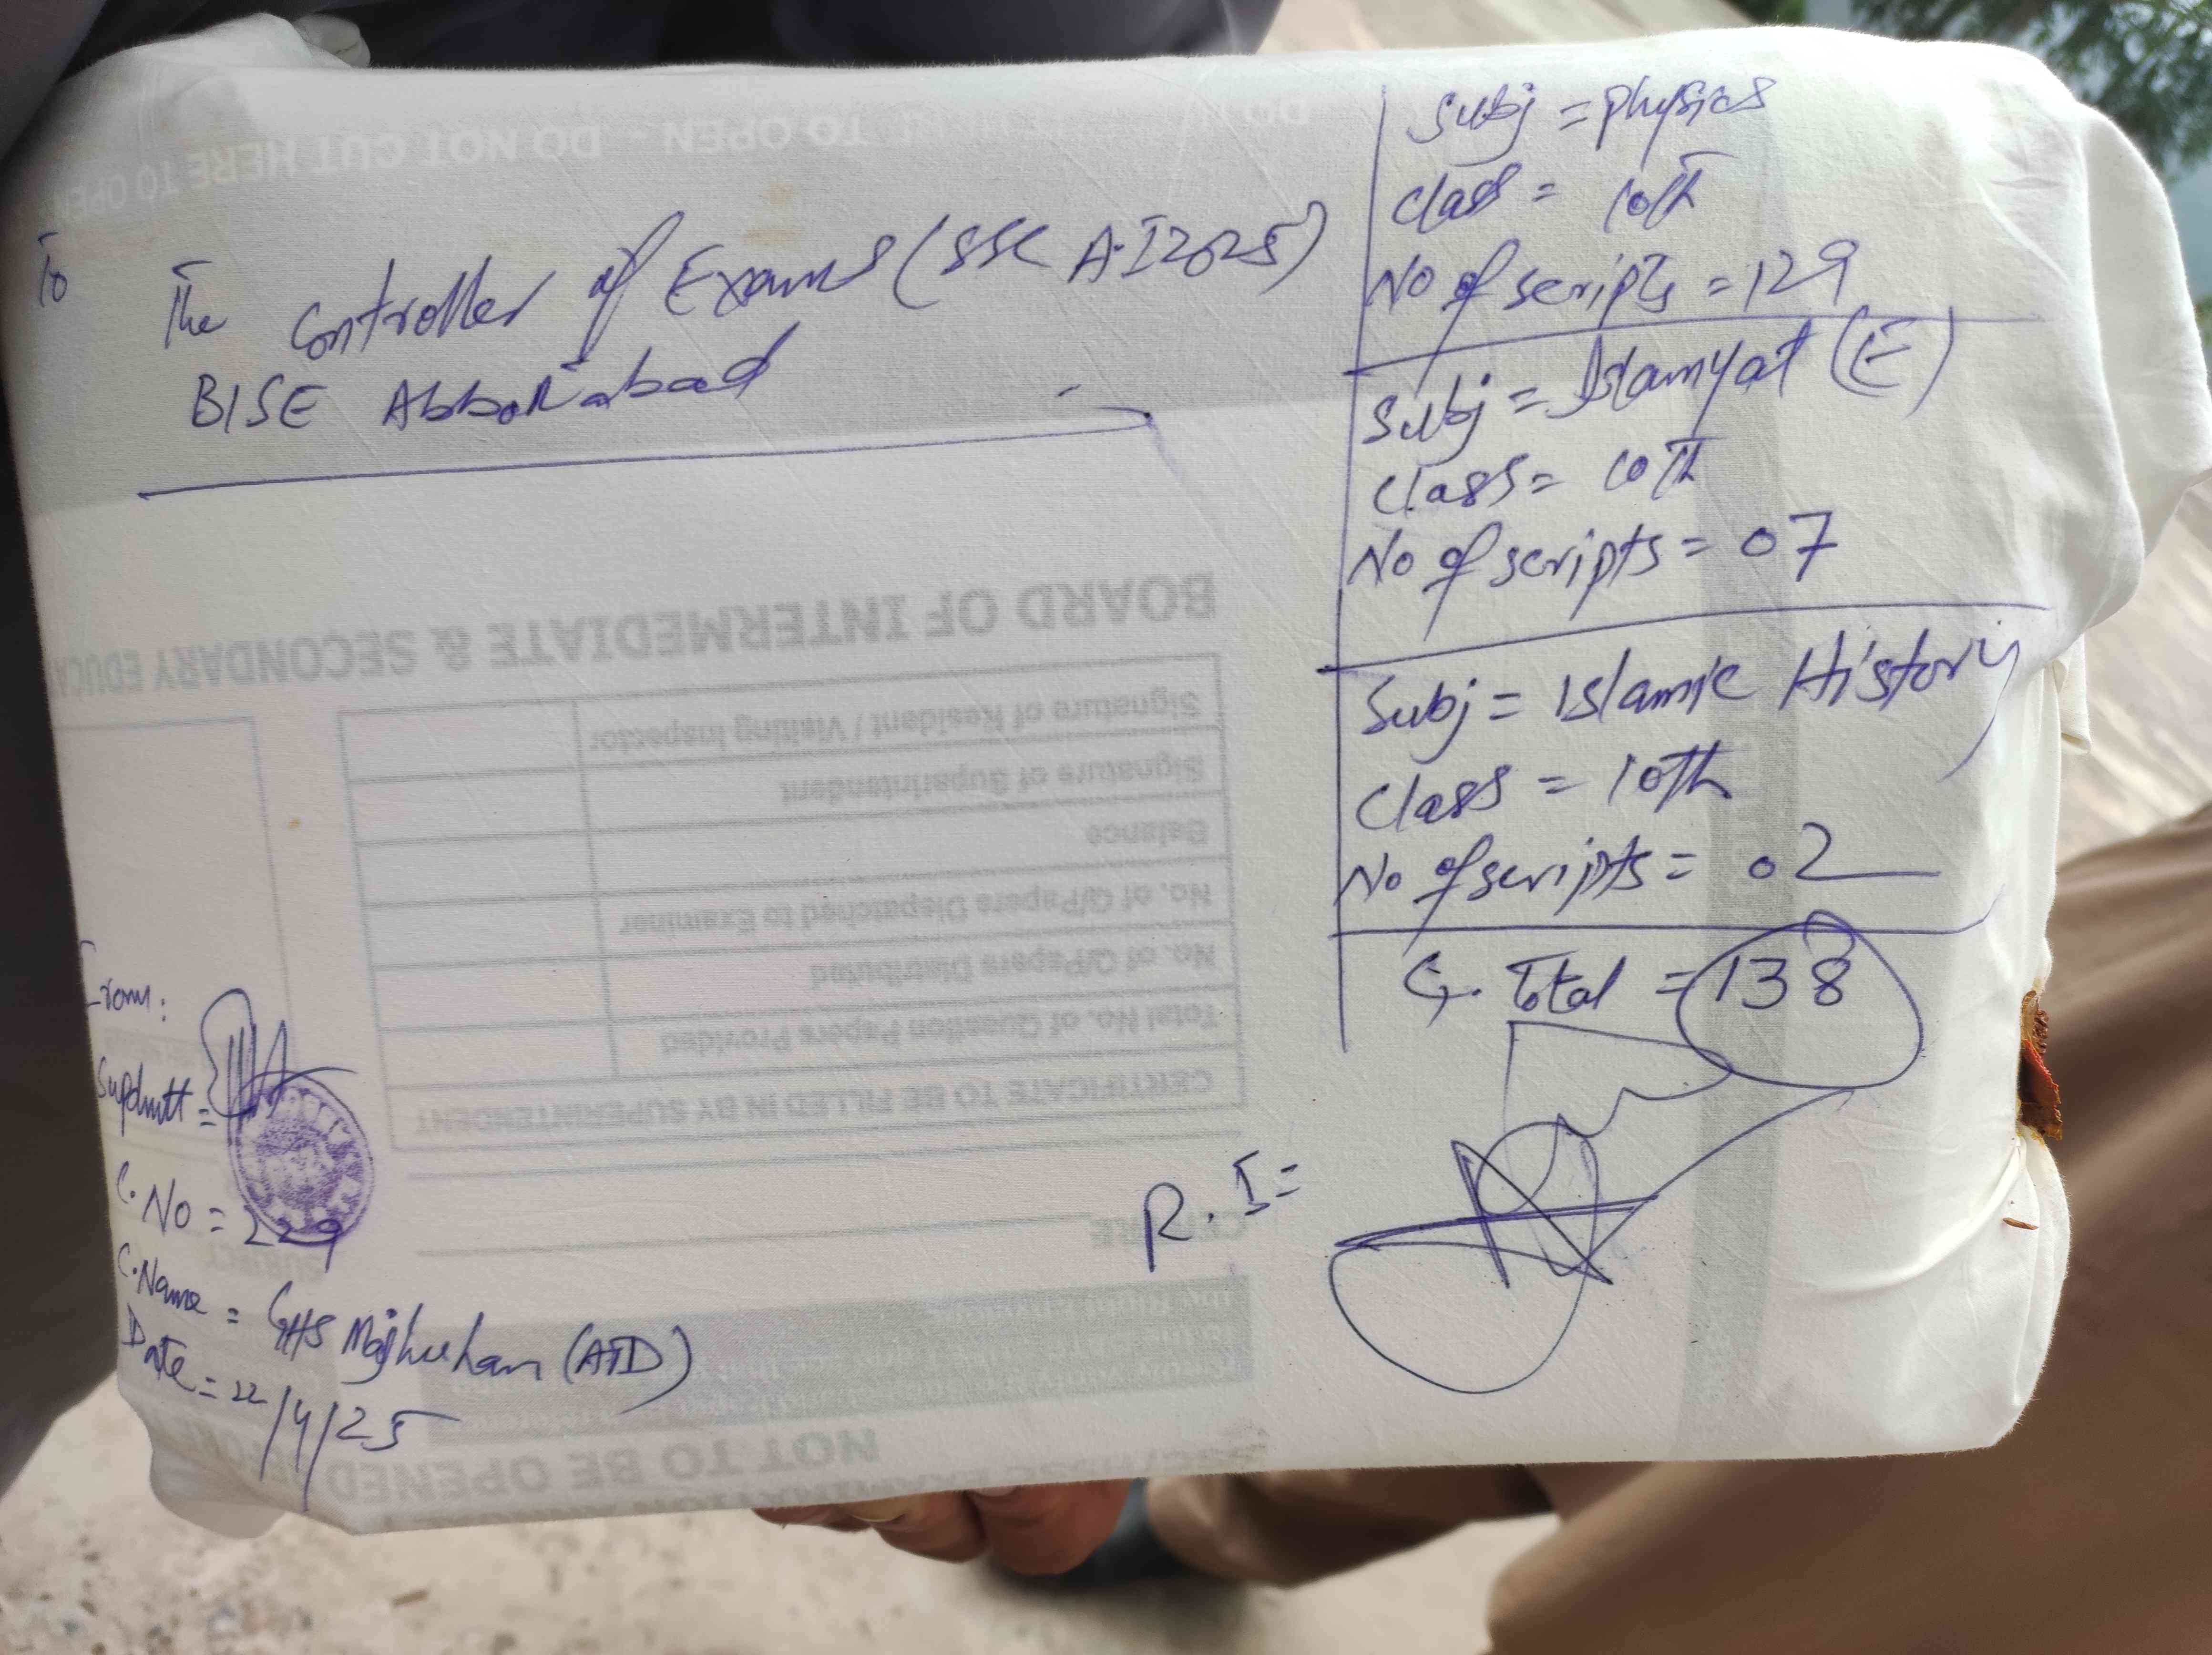 To
The Controller of Exams (SSC A-I 2025)
BISE Abbottabad
Subj = Physics
Class = 10th
No of scripts = 129
Subj = Islamyat (E)
Class = 10th
No of scripts = 07
Subj = Islamic History
Class = 10th
No of scripts = 02
G. Total = 138
R. I =
From:
Supdntt =
C. No = 229
C. Name = GHS Majhuhan (ATD)
Date = 22/4/25
TO OPEN - DO NOT CUT HERE TO OPEN
BOARD OF INTERMEDIATE & SECONDARY
Signature of Resident / Visiting Inspector
Signature of Superintendent
Balance
No. of Q/Papers Dispatched to Examiner
No. of Q/Papers Distributed
Total No. of Question Papers Provided
CERTIFICATE TO BE FILLED IN BY SUPERINTENDENT
CENTRE
SUBJECT
NOT TO BE OPENED